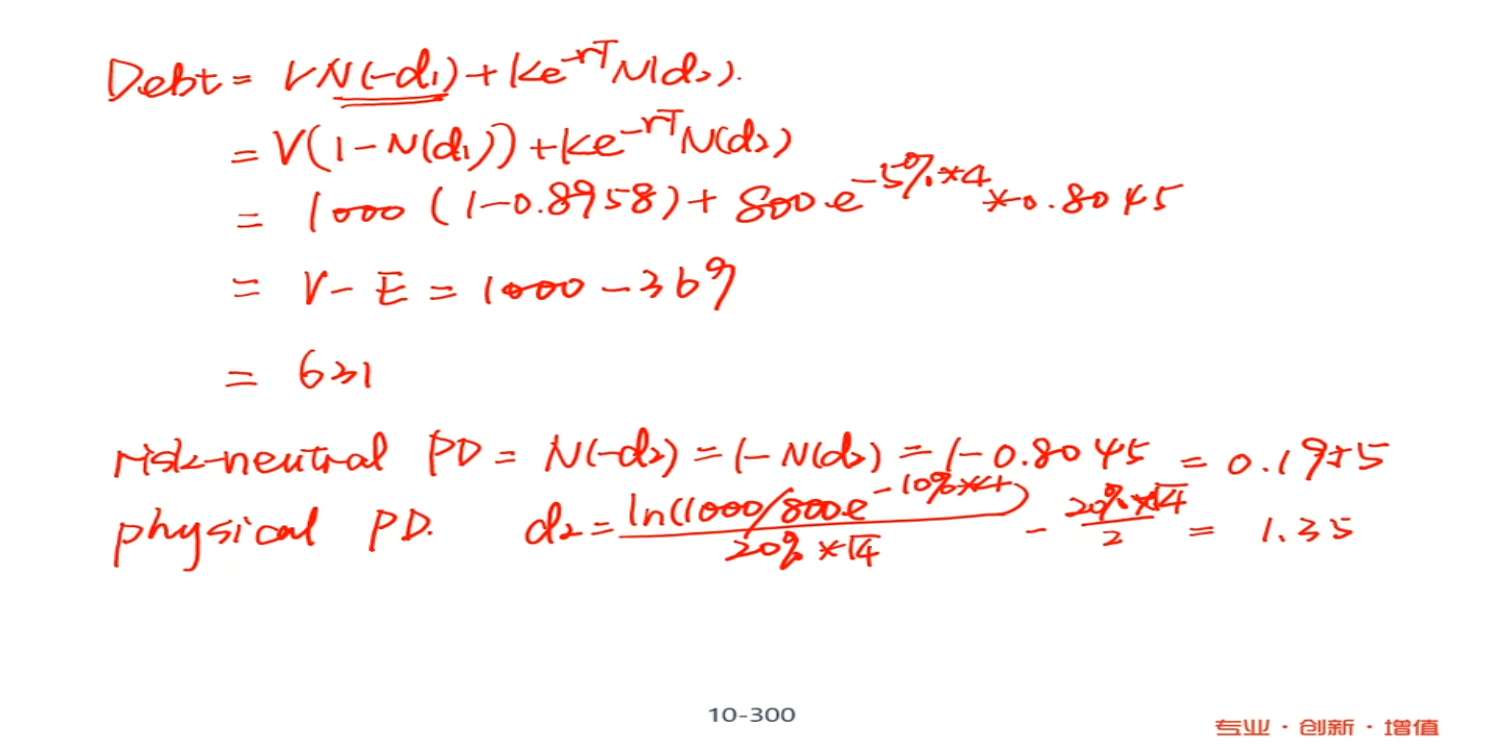 Debt = VN(-d₁) + Ke^(-rT) N(d₂).
= V(1-N(d₁)) + Ke^(-rT) N(d₂)
= 1000 (1-0.8958) + 800e^(-5%*4) *0.8045
= V-E = 1000-369
= 631
risk-neutral PD = N(-d₂) = 1-N(d₂) = 1-0.8045 = 0.1955
physical PD. d₂ = ln(1000/800e^(-10%*4)) / 20%*√4 - 20%*√4 / 2 = 1.35
10-300
专业·创新·增值